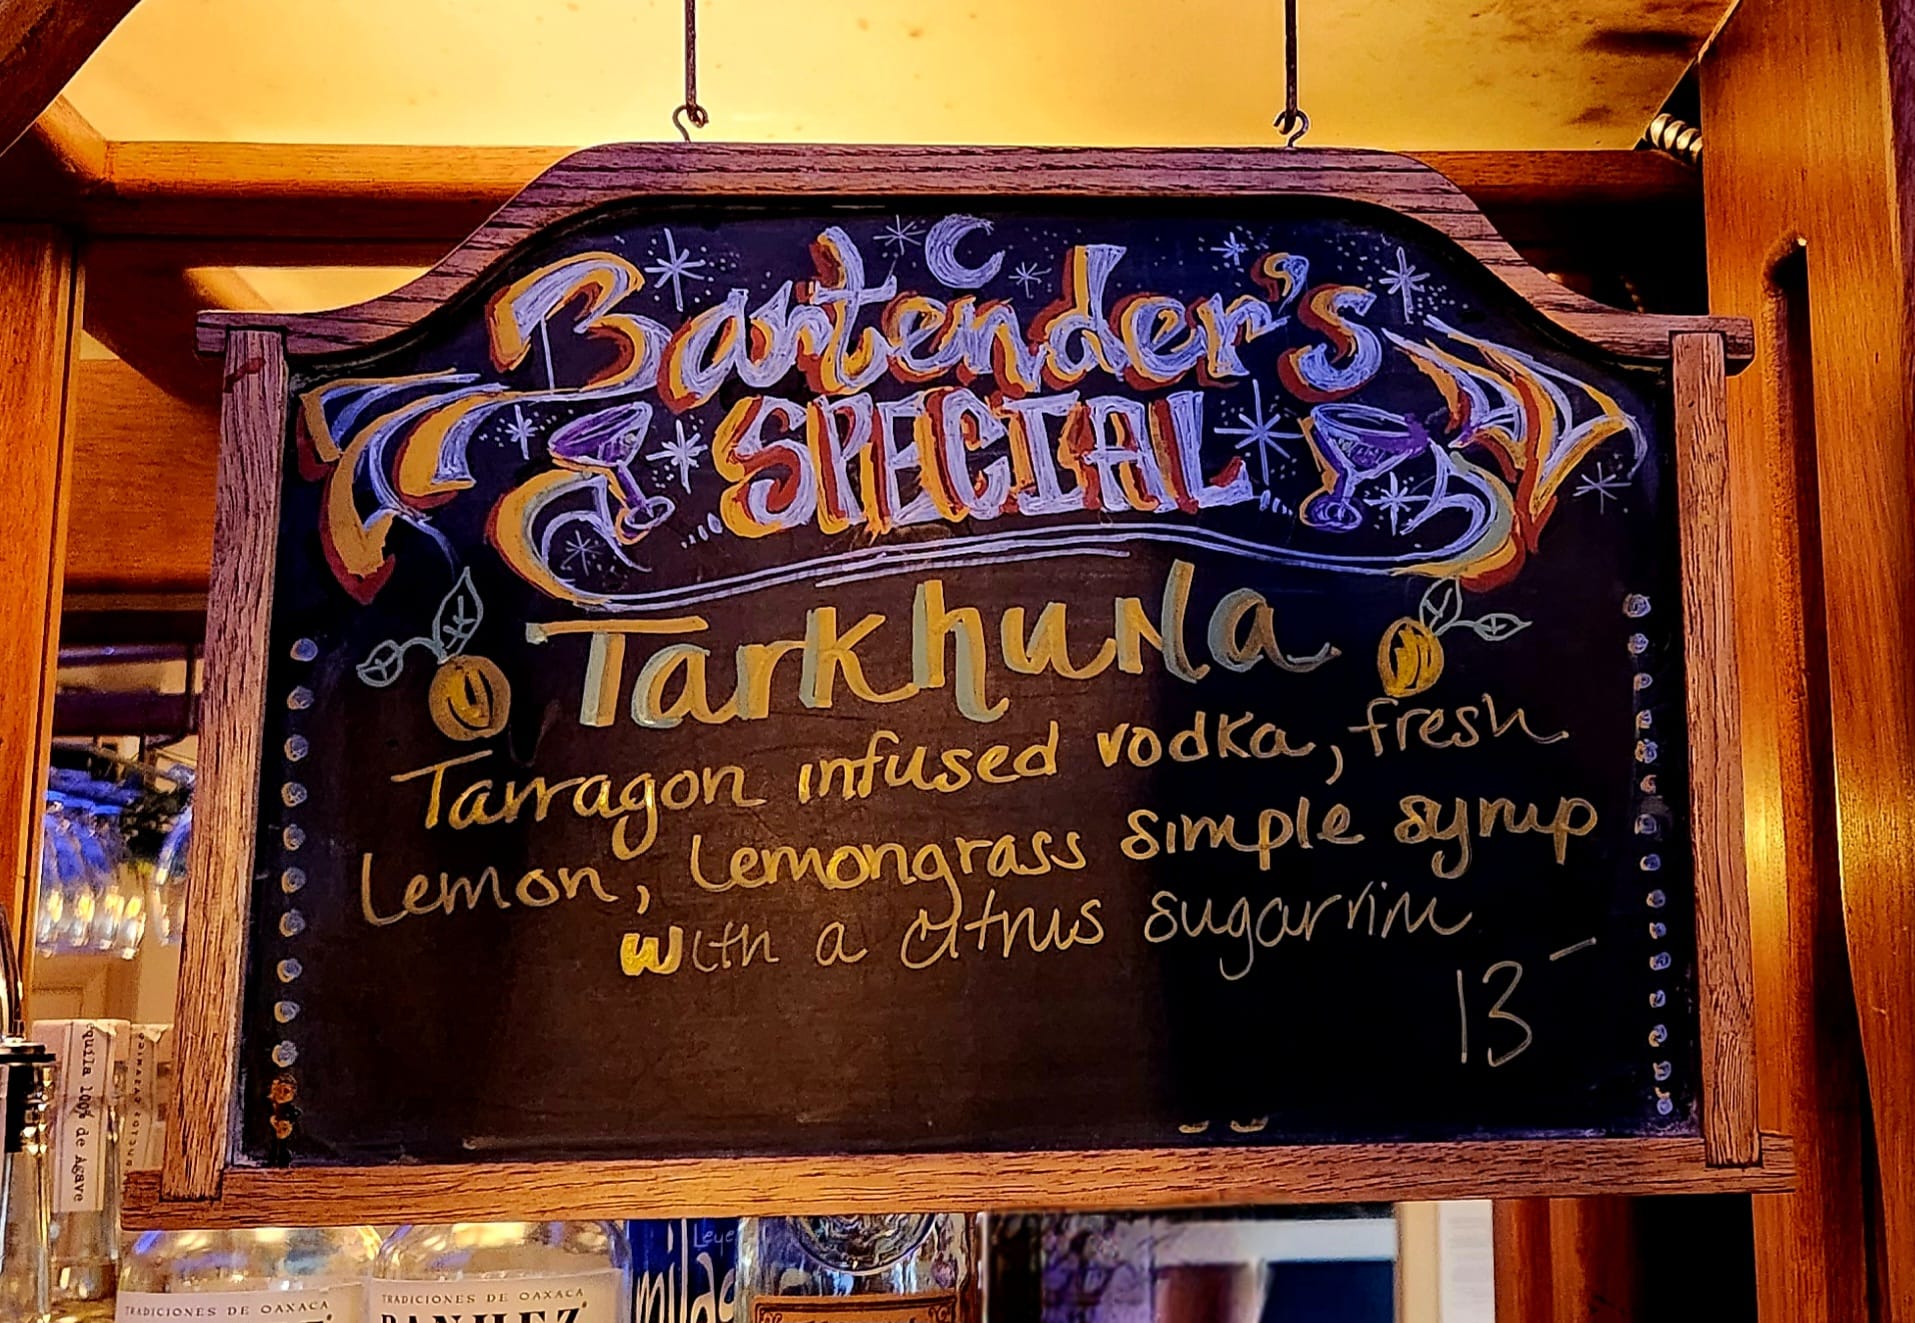 Bartender's
SPECIAL
TarkhuNa
Tarragon infused vodka, fresh
Lemon, Lemongrass simple syrup
with a citrus sugar rim
13-
quila 100% de Agave
TRADICIONES DE OAXACA
TRADICIONES DE OAXACA
BANHEZ
Leye
milag